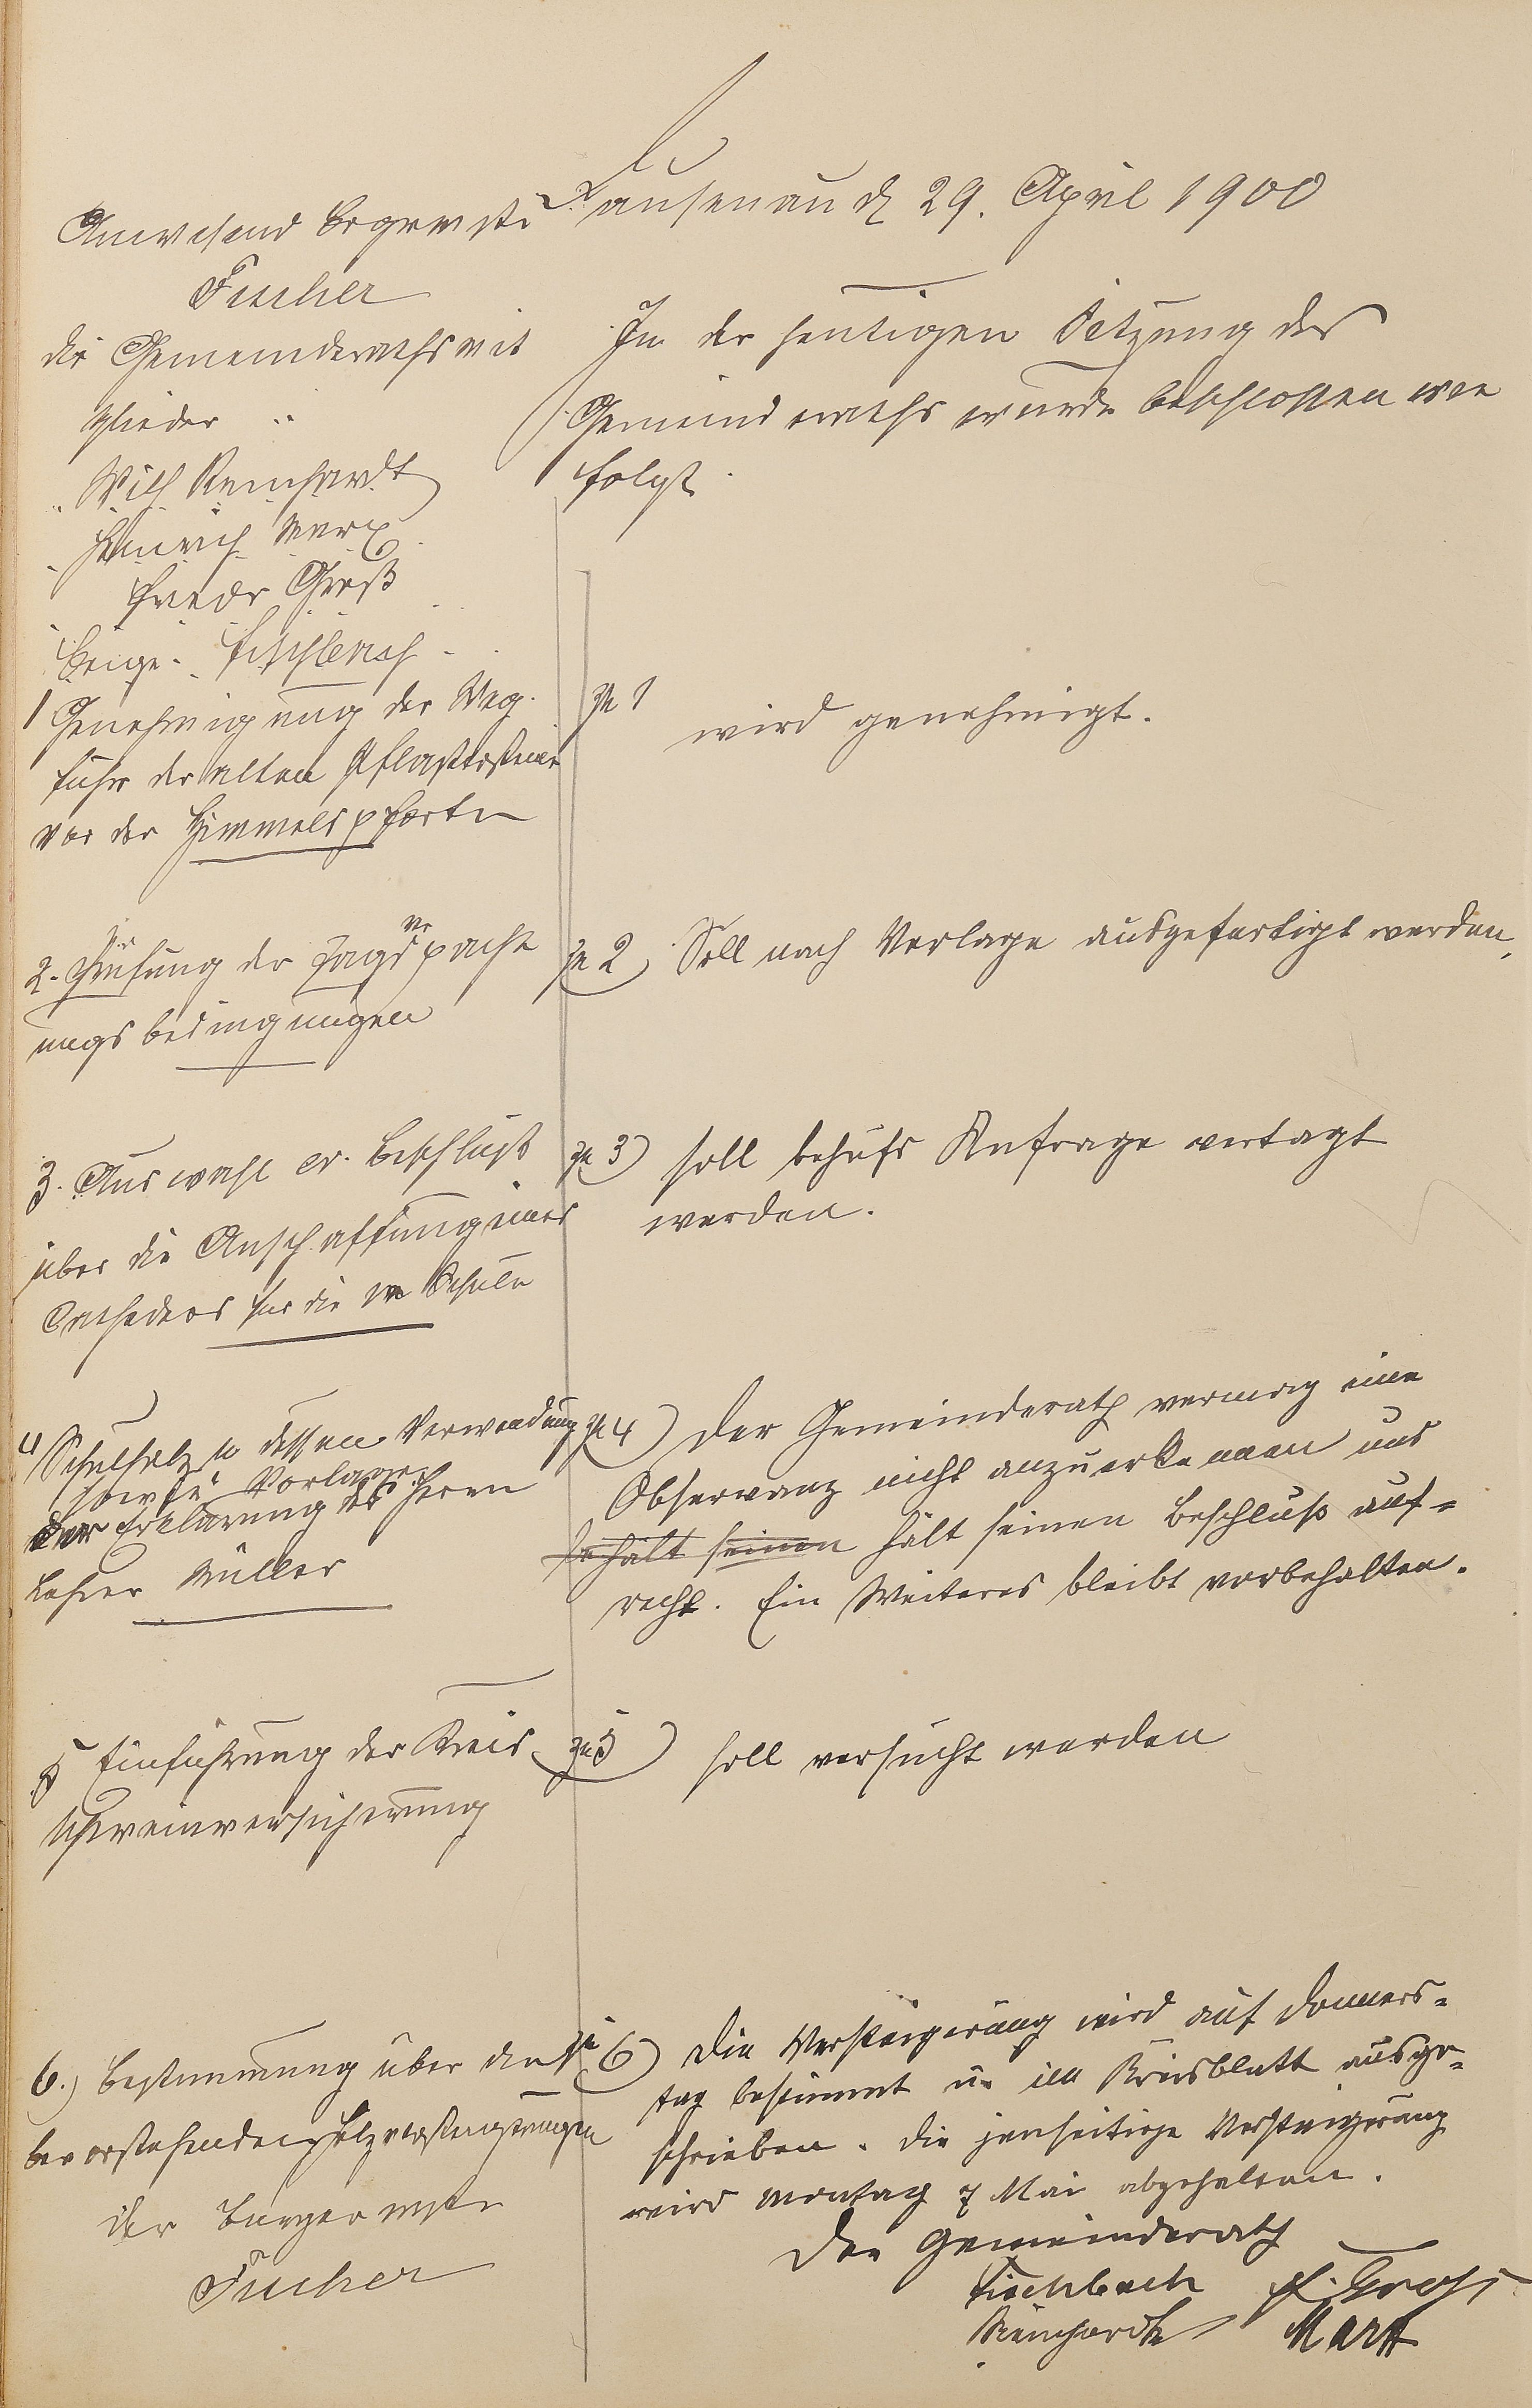 Lausenau d. 29. April 1900
Anwesend Bürgermstr
Fischer
die Gemeinderathsmit
glieder
Wilh Reinhardt
Heinrich Marx
Friedr Groß
Beige. Fischbach
In der heutigen Sitzung des
Gemeinderaths wurde beschlossen wie
folgt
1 Genehmigung der Weg-
fuhr der alten Pflastersteine
vor der Himmelspforte
zu 1 wird genehmigt.
2. Prüfung der Jagdverpacht
ungsbedingungen
zu 2) Soll nach Vorlage ausgefertigt werden.
3. Auswahl er. Beschluß
über die Anschaffung eines
Catheders für die Schule
zu 3) soll behufs Anfrage vertagt
werden.
4 Schulholz u dessen Verwendung
sowie Vorlage
der Erklärung des Herrn
Lehrer Müller
zu 4) Der Gemeinderath vermag eine
Observanz nicht anzuerkennen und
behält seinen hält seinen Beschluß auf-
recht. Ein Weiteres bleibt vorbehalten.
5 Einführung der Kreis
schweinversicherung
zu 5) soll versucht werden
6.) Bestimmung über die
bevorstehenden Holzversteigerungen
Der Bürgermstr
Fischer
zu 6) Die Versteigerung wird auf Donners-
tag bestimmt u. im Kreisblatt ausge-
schrieben. Die jenseitige Versteigerung
wird Montag 7 Mai abgehalten.
Der Gemeinderath
Fischbach F. Groß
Reinhardt Marx